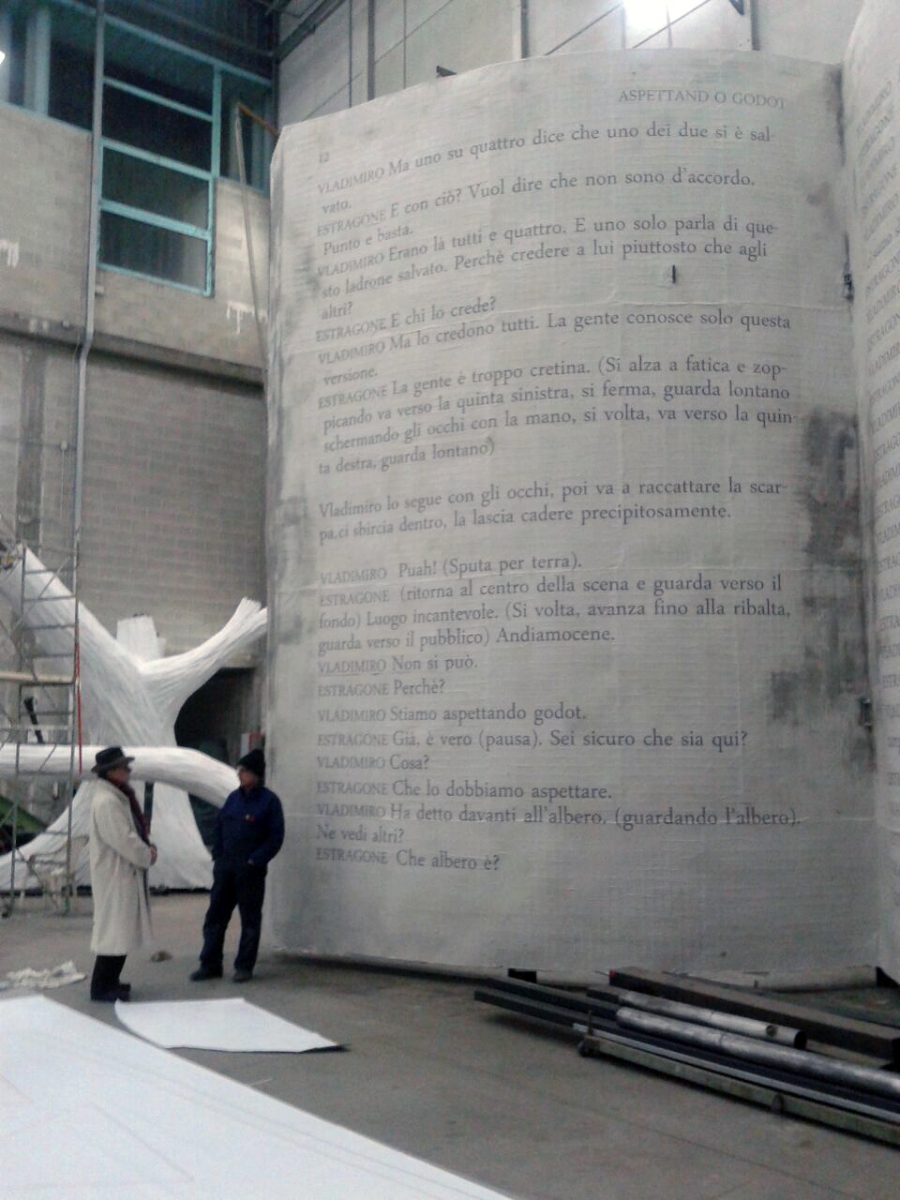 ASPETTAND O GODOT
12
VLADIMIRO Ma uno su quattro dice che uno dei due si è sal-
vato.
ESTRAGONE E con ciò? Vuol dire che non sono d'accordo.
Punto e basta.
VLADIMIRO Erano là tutti e quattro. E uno solo parla di que-
sto ladrone salvato. Perchè credere a lui piuttosto che agli
altri?
ESTRAGONE E chi lo crede?
VLADIMIRO Ma lo credono tutti. La gente conosce solo questa
versione.
ESTRAGONE La gente è troppo cretina. (Si alza a fatica e zop-
picando va verso la quinta sinistra, si ferma, guarda lontano
schermando gli occhi con la mano, si volta, va verso la quin-
ta destra, guarda lontano)
Vladimiro lo segue con gli occhi, poi va a raccattare la scar-
pa,ci sbircia dentro, la lascia cadere precipitosamente.
VLADIMIRO Puah! (Sputa per terra).
ESTRAGONE (ritorna al centro della scena e guarda verso il
fondo) Luogo incantevole. (Si volta, avanza fino alla ribalta,
guarda verso il pubblico) Andiamocene.
VLADIMIRO Non si può.
ESTRAGONE Perchè?
VLADIMIRO Stiamo aspettando godot.
ESTRAGONE Già, è vero (pausa). Sei sicuro che sia qui?
VLADIMIRO Cosa?
ESTRAGONE Che lo dobbiamo aspettare.
VLADIMIRO Ha detto davanti all'albero, (guardando l'albero).
Ne vedi altri?
ESTRAGONE Che albero è?